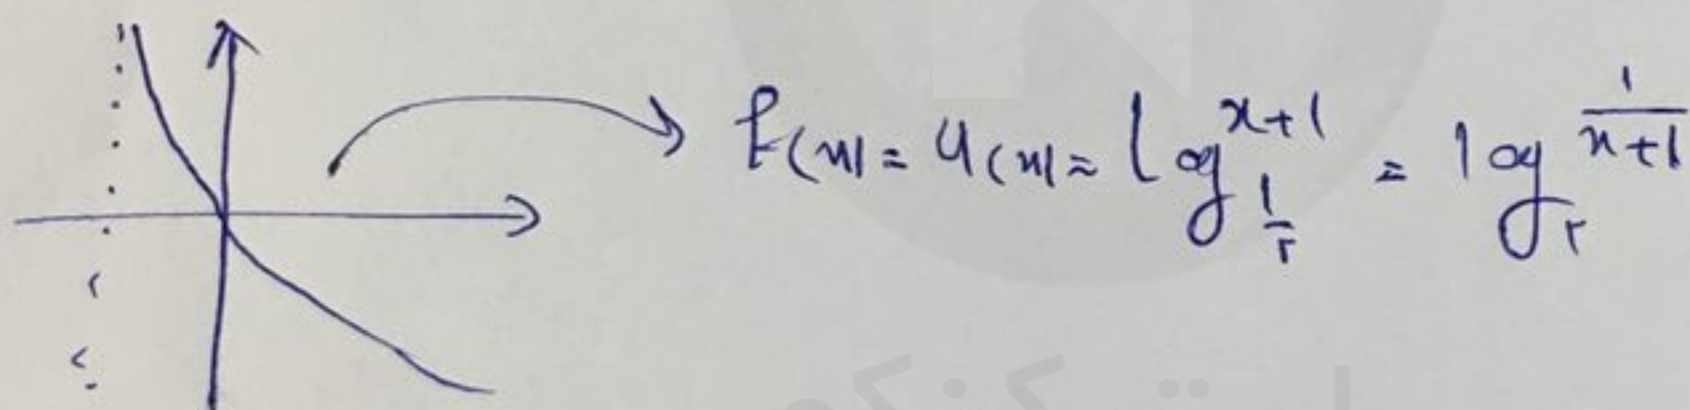 f(x) = u(x) = log_{1/۲}^{x+1} = log_۲^{1/(x+1)}